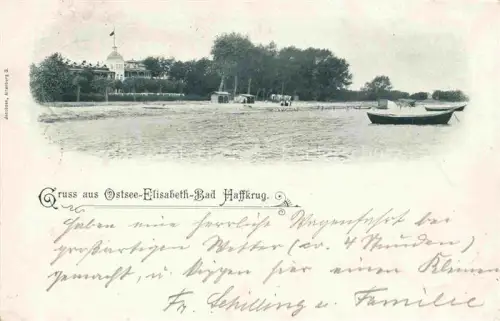 Gruss aus Ostsee-Elisabeth-Bad Haffkrug.
Haben eine herrliche Wagenfahrt bei
großartigen Wetter (ca. 4 Stunden)
gemacht, u. kippen hier einen Kleinen
Fr. Schilling u. Familie